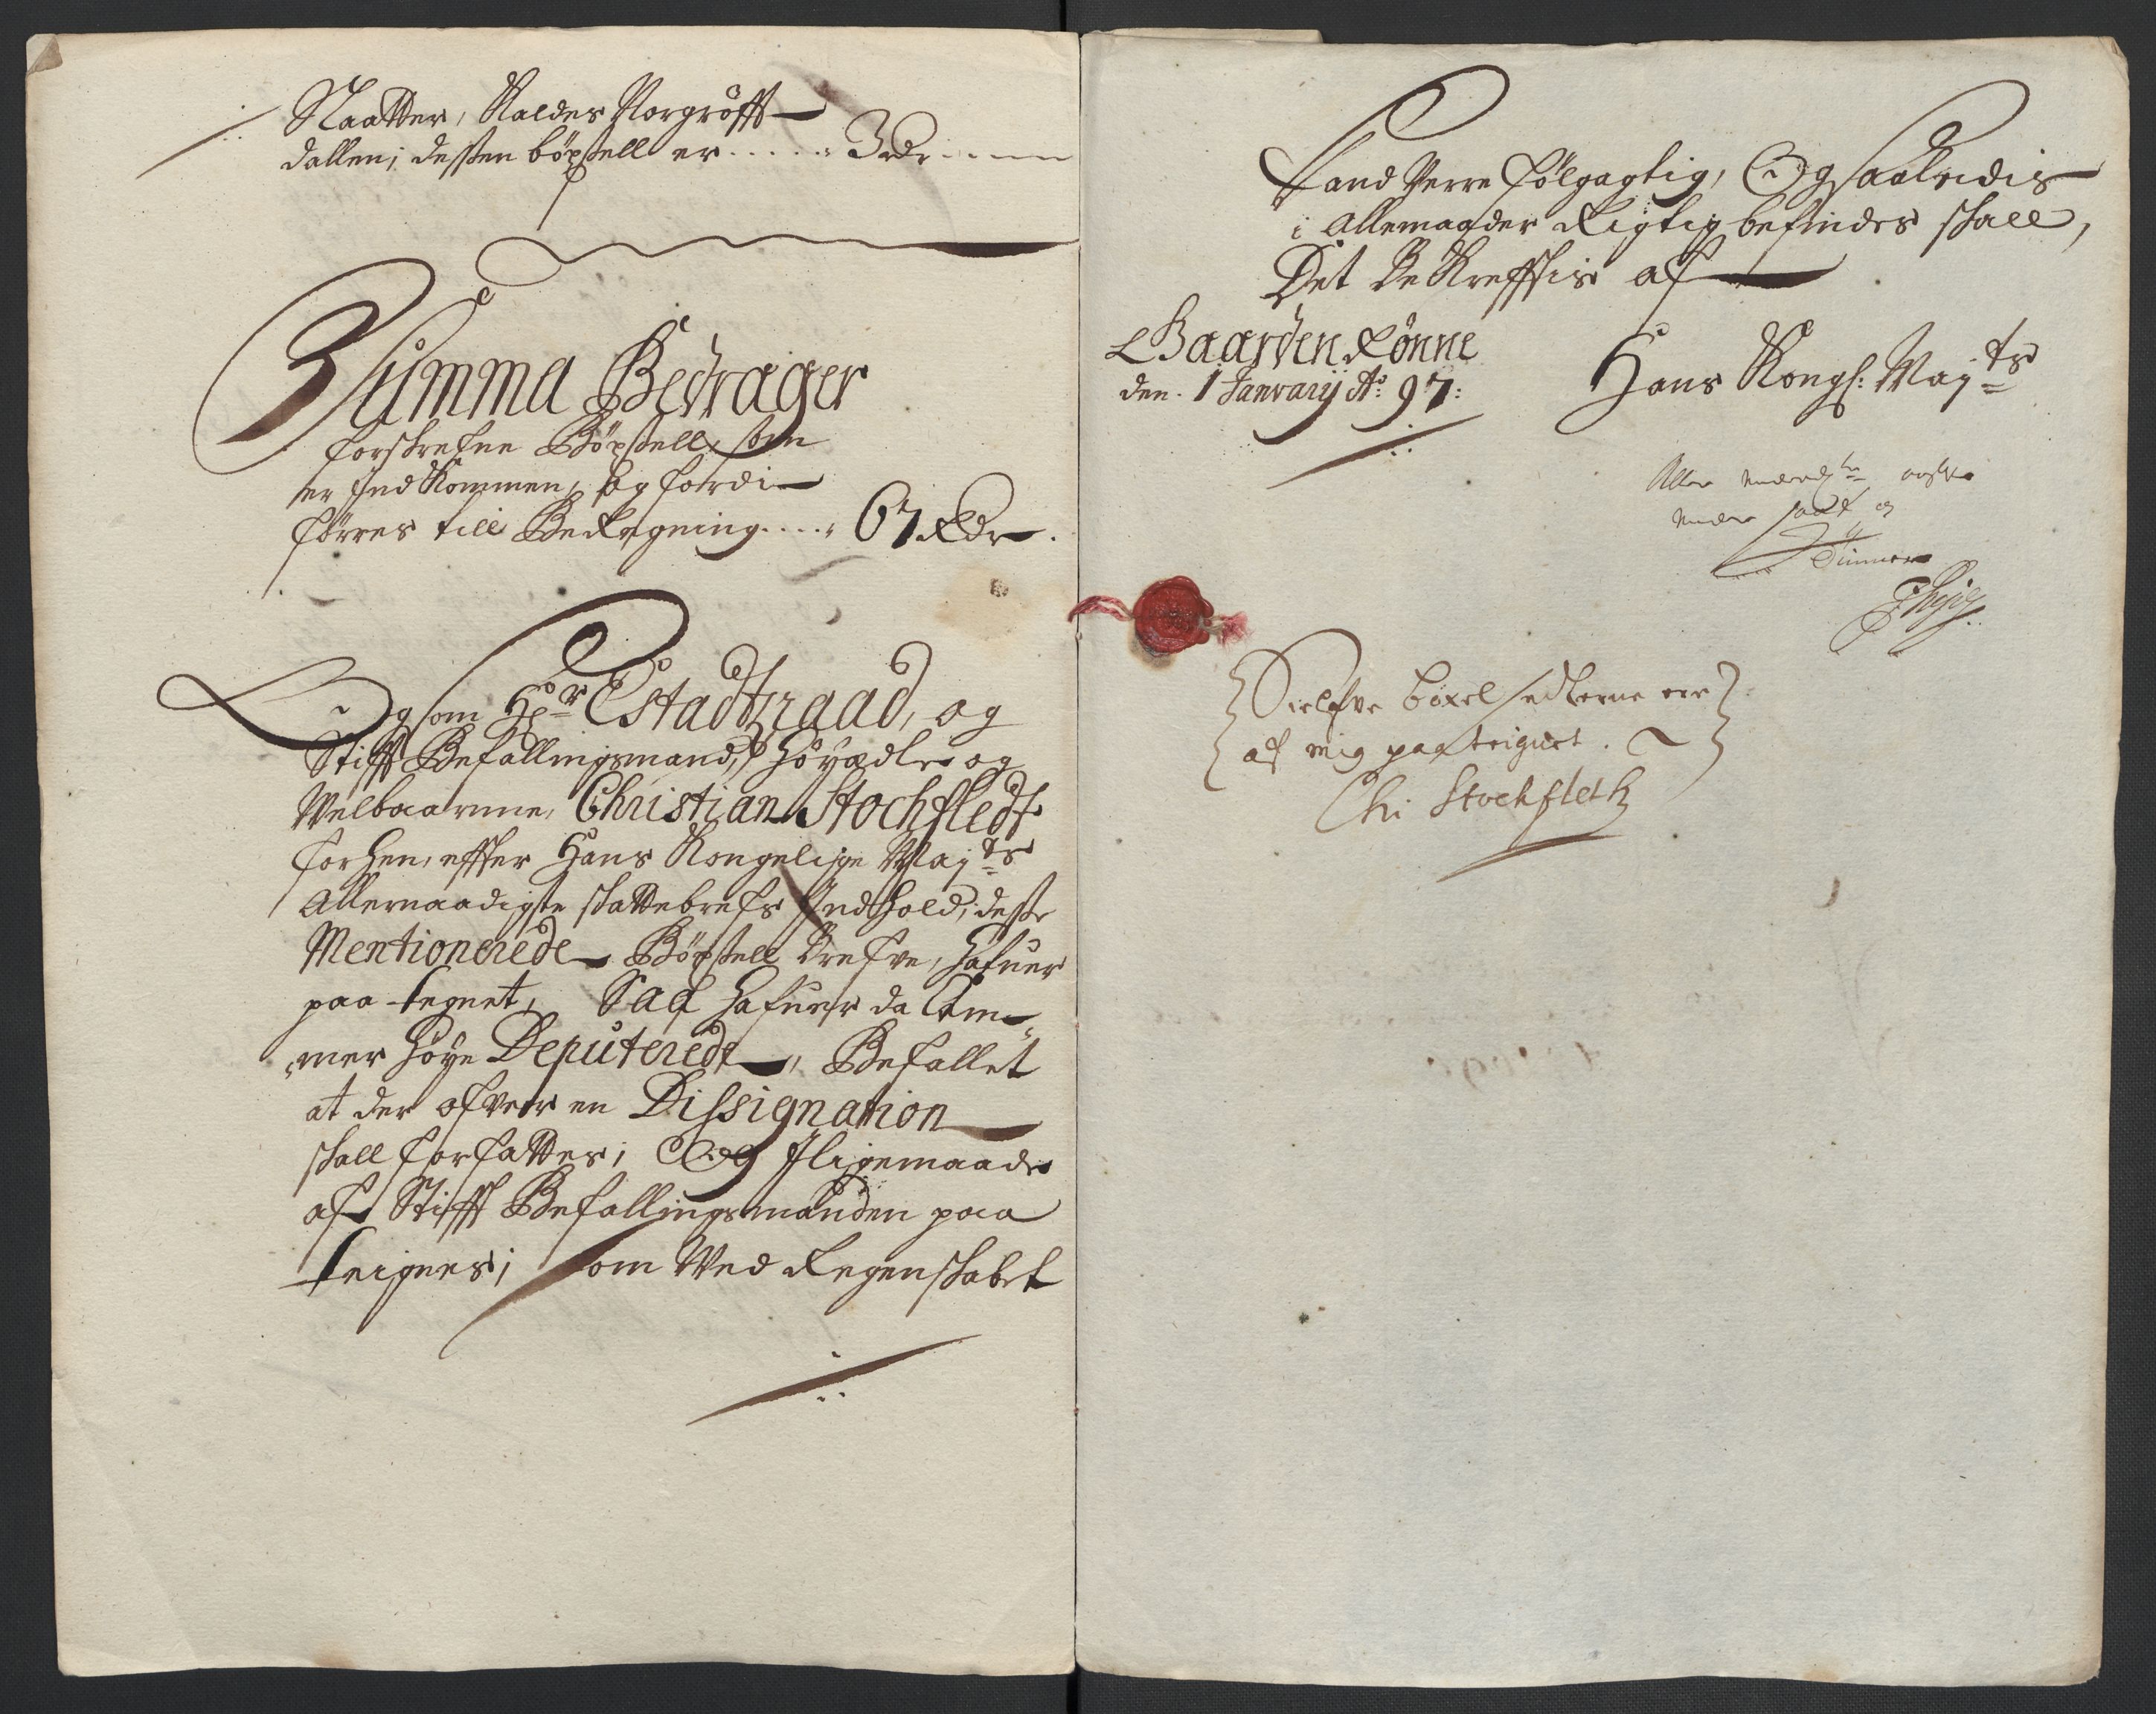 Slaatter, Kaldes Norgröfft
dallen; dessen böxsell er ..... 3 rdr
Summa Bedrager
forskrefne Böxsell, som
er Indkommen, og fordi
förres till Beregning .... 67 Rdr.
Og som Hr Estadtzraad, og
Stifft Befallingsmand, Höyædle og
Welbaarnne, Christian Stochfledt
forhen, effter Hans Kongelige Mayts
Allernaadigste skattebrefs Indhold, desse
Mentionerede Böxsell Brefve, hafuer
paa tegnet, Saa hafuer da Cam-
mer höye Deputerede, Befallet
at der ofver en Dissignation
skall forfattes; Og Iligemaade
af Stifft Befallingsmanden paa
teignes; som Wed Regenskabet
Kand Verre fölgagtig, Og saaledis
i Allemaader Rigtig befindes skall,
Det Bekrefftis af
Gaarden Rönne
den. 1 January Ao 97:
Hans Kongl: Mayts
Aller
Tiener
Sielfve böxel sedlerne ere
af mig paateignet.
Chr Stochfleth